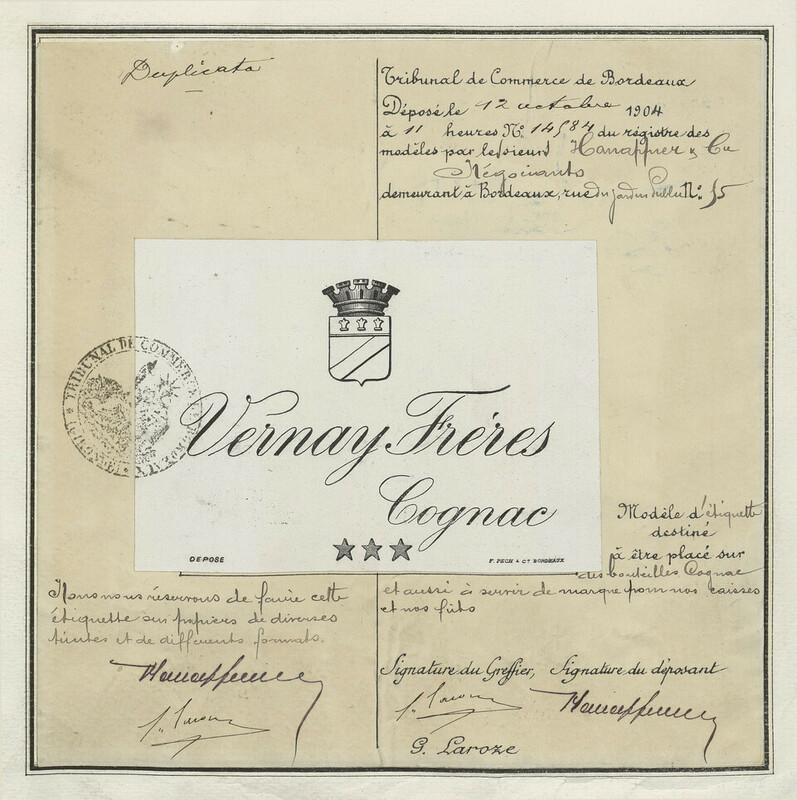 Duplicata
Tribunal de Commerce de Bordeaux
Déposé le 12 octobre 1904
à 11 heures No. 14584 du régistre des
modèles par le sieurs Hanappier & Cie
Négociants
demeurant à Bordeaux, rue du jardin Public No. 55
TRIBUNAL DE COMMERCE
BORDEAUX
Vernay Fréres
Cognac
DEPOSE
F. PECH & Cie BORDEAUX
Modèle d'étiquette
destiné
à être placé sur
des bouteilles Cognac
et aussi à servir de marque pour nos caisses
et nos fûts
Nous nous réservons de faire cette
étiquette sur papiers de diverses
teintes et de différents formats.
Signature du Greffier, Signature du déposant
G. Laroze